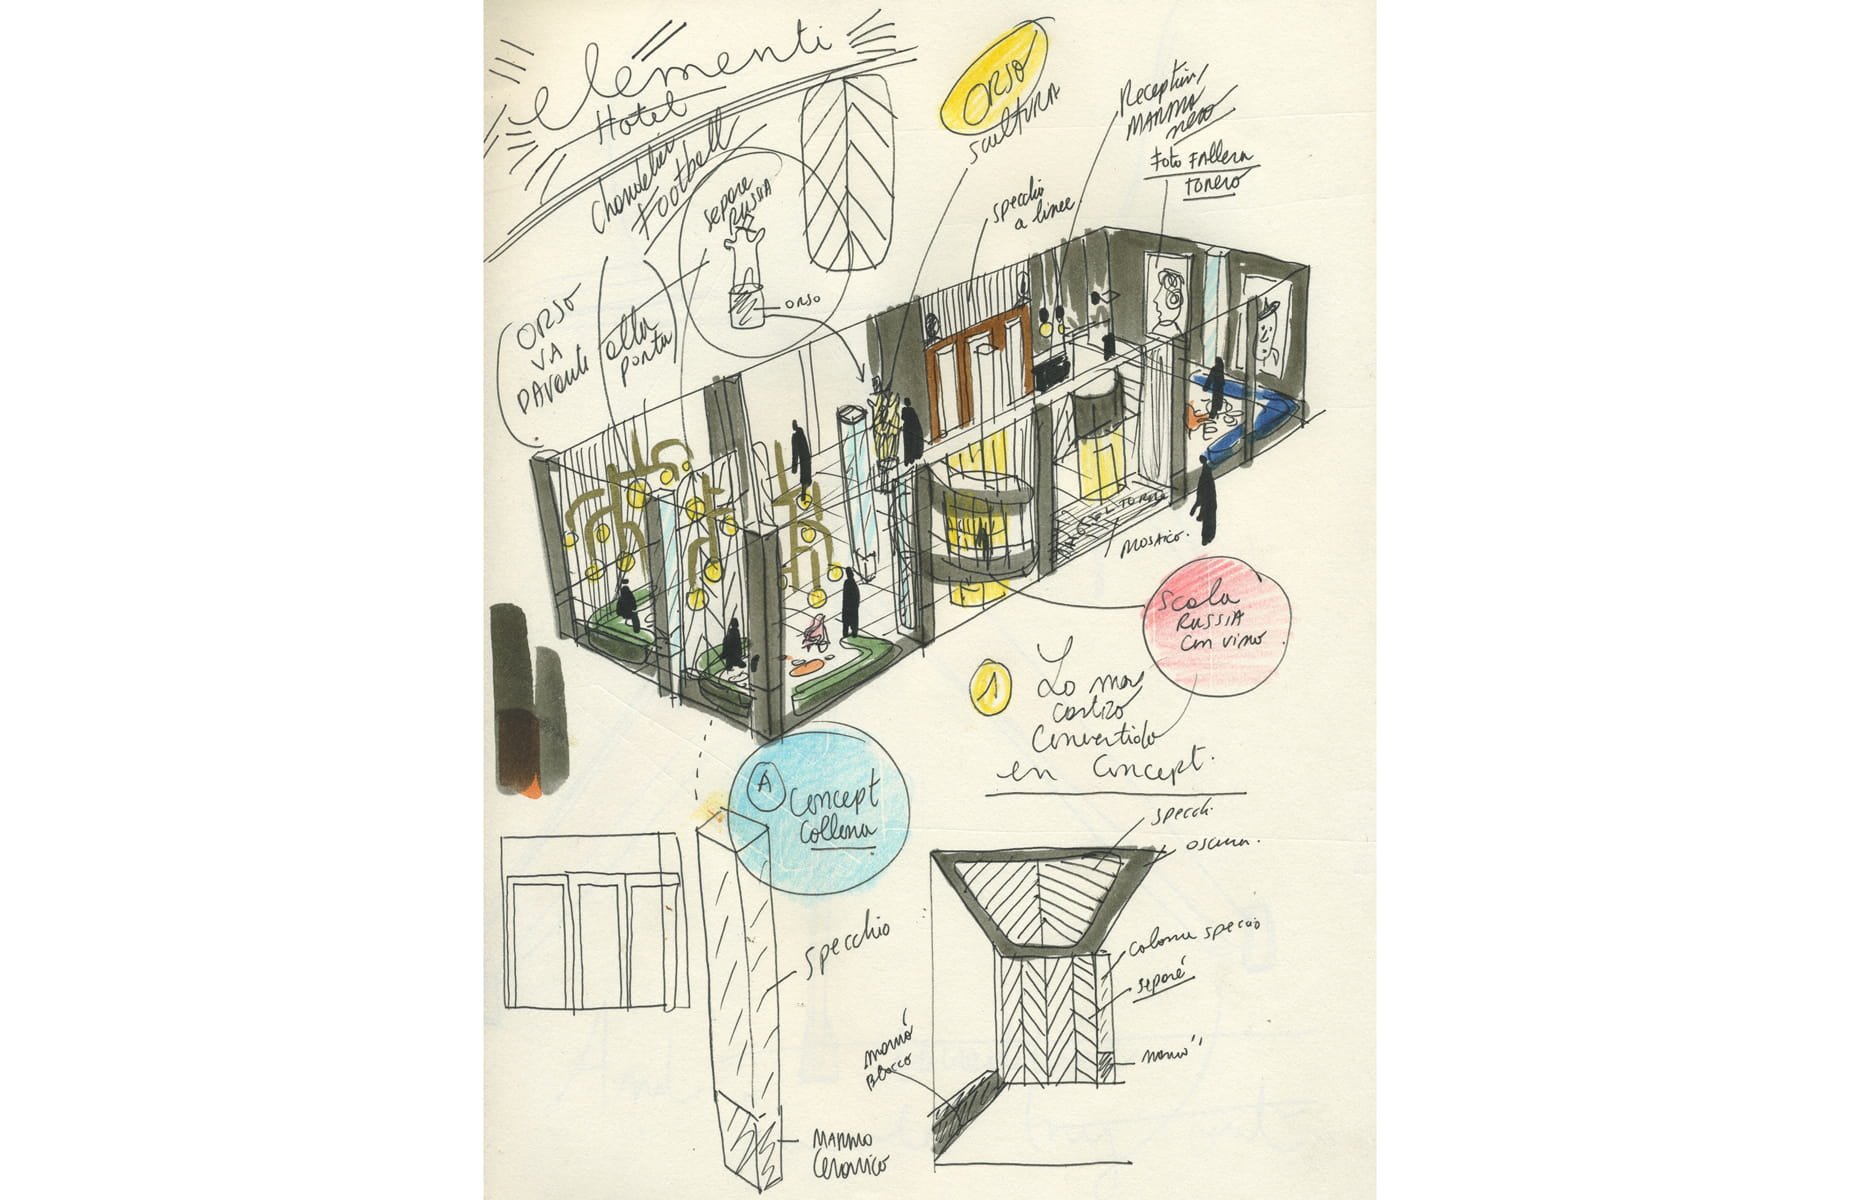 elementi
Hotel
chandelier
football
separe
RUSSIA
ORSO
ORSO
VA
DAVanti
alla
porta
ORSO
scultura
specchio
a linee
Reception
MARMO
nero
Foto FAllera
torero
MOSAICO.
Scala
RUSSIA
con vino
1
Lo mas
castizo
convertido
en Concept.
A
Concept
collena
specchio
MARMO
Ceramico
Blocco
specchi
oscura.
colonna speccio
separé